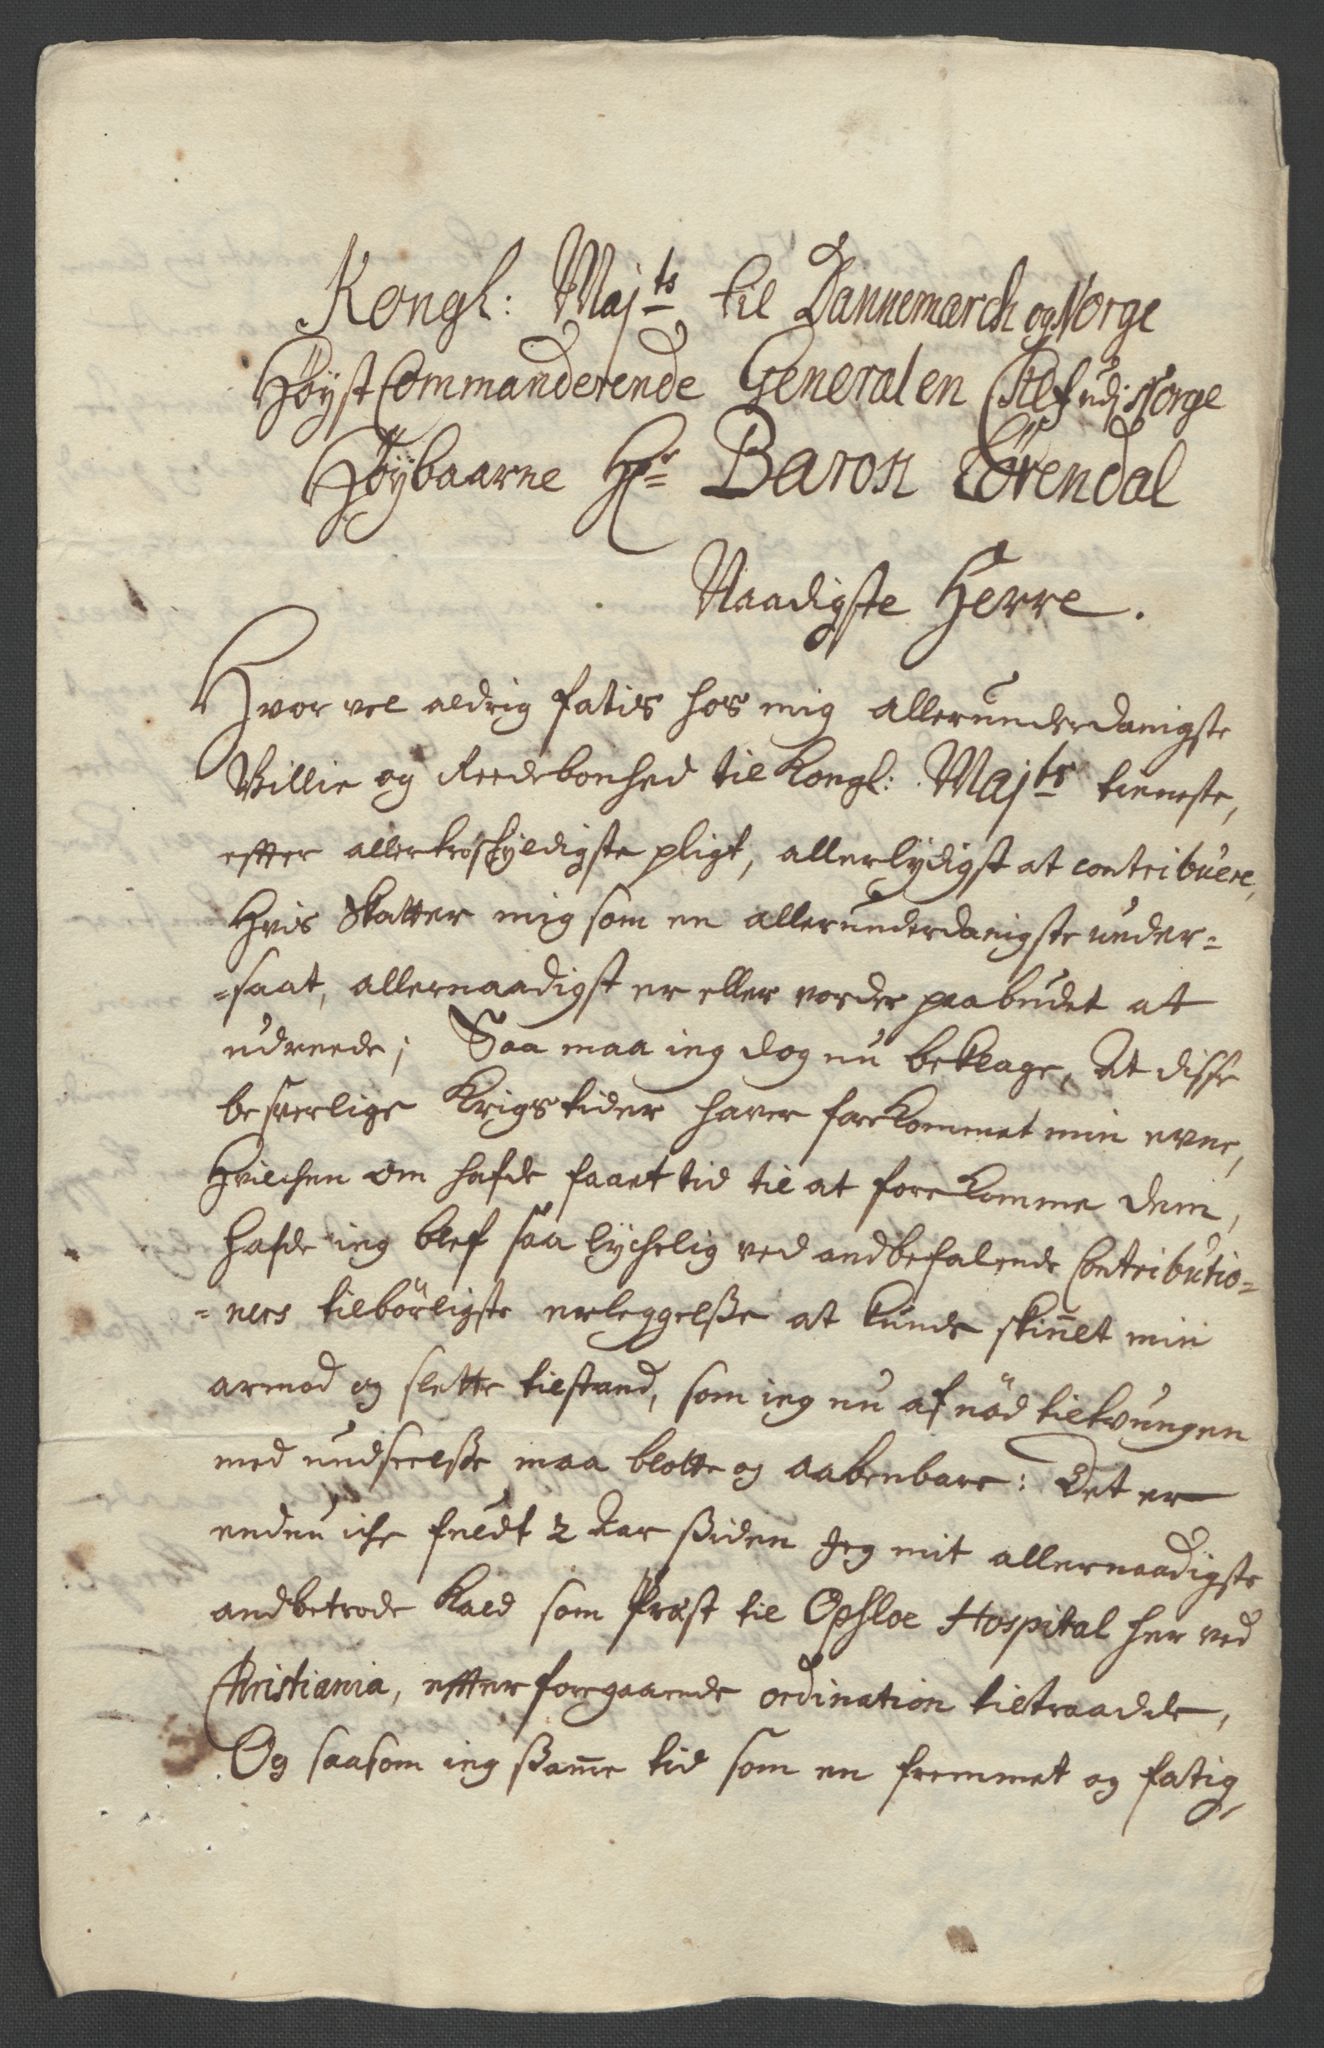 Kongl: Maj^ts til Dannemarch og Norge
Höyst Commanderende General en Chef udj Norge
Höybaarne Hr Baron Lövendal
Naadigste Herre.
Hvor vel aldrig fatis hos mig allerunderdanigste
Villie og Reedebonhed til Kongl: Maj^ts tieneste,
efter allerskyldigste pligt, allerlydigst at contribuere,
Hvis Skatter mig som en allerunderdanigste under=
=saat, allernaadigst er eller vorder paabudet at
udreede; Saa maa ieg dog nu beklage, At disse
besverlige Krigstider haver forekommet min evne,
Hvilchen om hafde faaet tid til at forekomme dem,
hafde ieg blef saa lychelig ved andbefalende Contributio=
=ners tilbörligste erleggelsse at kunde skiult min
armod og slette tilstand, som ieg nu af nöd tiltvungen
med undseelsse maa blotte og aabenbare: Det er
endnu iche fuldt 2 Aar ssiden Jeg mit allernaadigste
andbetrode Kald som Præst til Opsloe Hospital her ved
Christiania, efter foregaaende ordination tiltraadde,
Og saasom ieg ssamme tid som en fremmet og fatig,